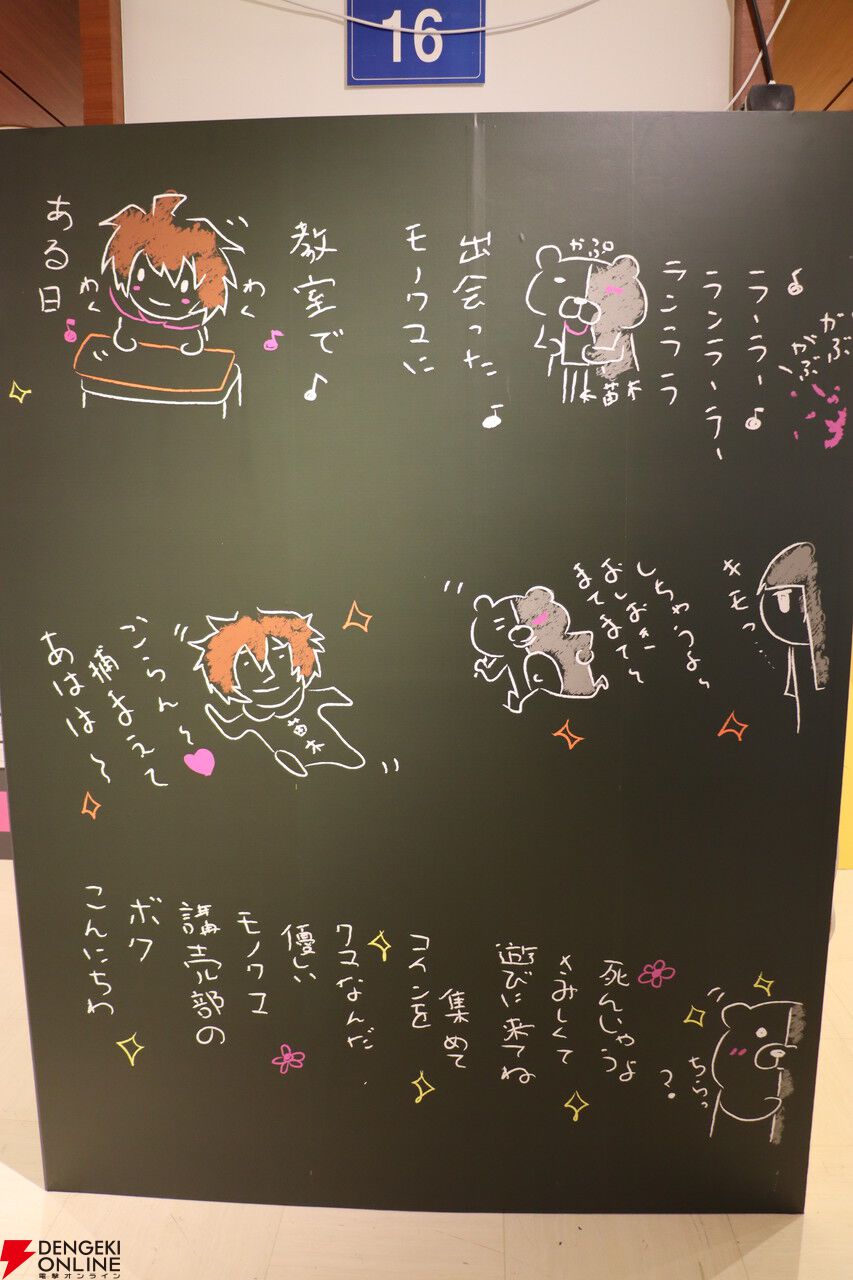 16
ある日
わく
わく
教室で♪
モノクマに
出会った♪
かぷ。
苗木
ランラララ
ランラーラー
ラーラー♪
がぶ
がぶ
あはは〜
捕まえて
ごらん〜
苗木
まてまて〜
おしおき
しちゃうよ〜
キモっ……
こんにちわ
ボク
講売部の
モノクマ
優しい
クマなんだ.
コインを
集めて
遊びに来てね
さみしくて
死んじゃうよ
?
ちらっ
DENGEKI
ONLINE
電撃オンライン